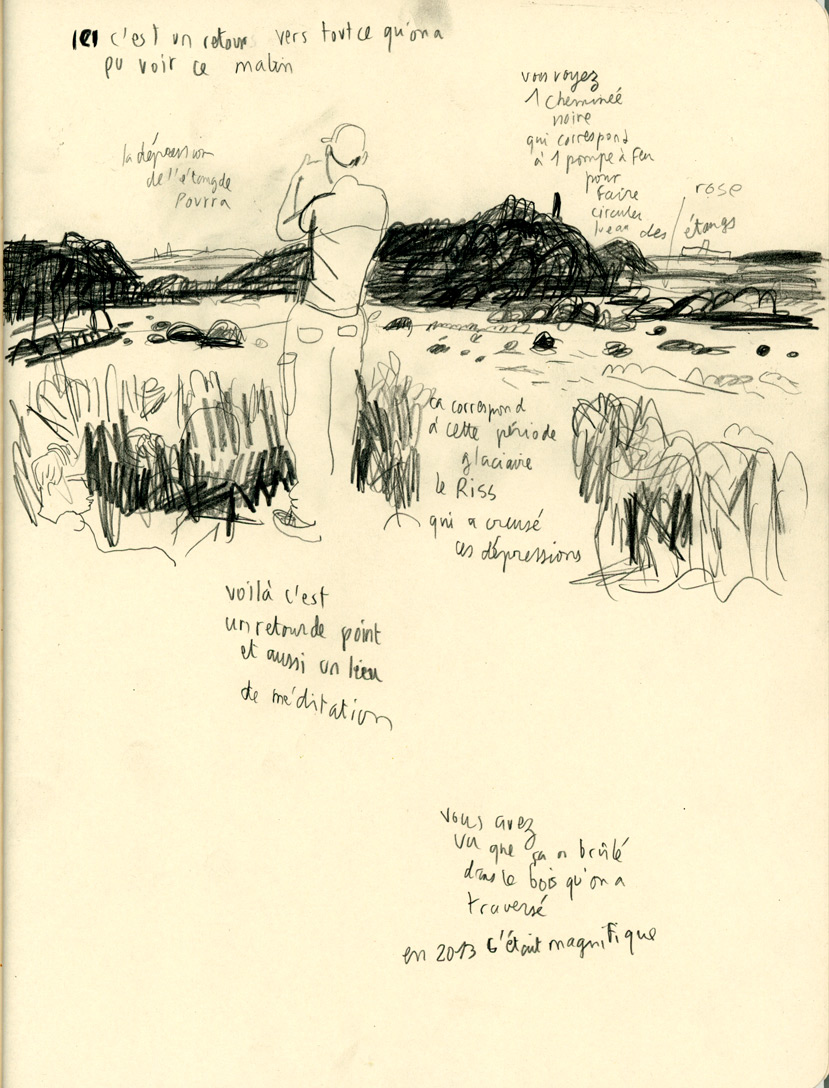 ICI c'est un retour vers tout ce qu'on a
pu voir ce matin
vous voyez
1 cheminée
noire
qui correspond
à 1 pompe à feu
pour
faire
circuler
l'eau des étangs
rose
la dépression
de l'étang de
Pourra
ça correspond
à cette période
glaciaire
le Riss
qui a creusé
ces dépressions
voilà c'est
un retour de point
et aussi un lieu
de méditation
vous avez
vu que ça a brûlé
dans le bois qu'on a
traversé
en 2013 c'était magnifique